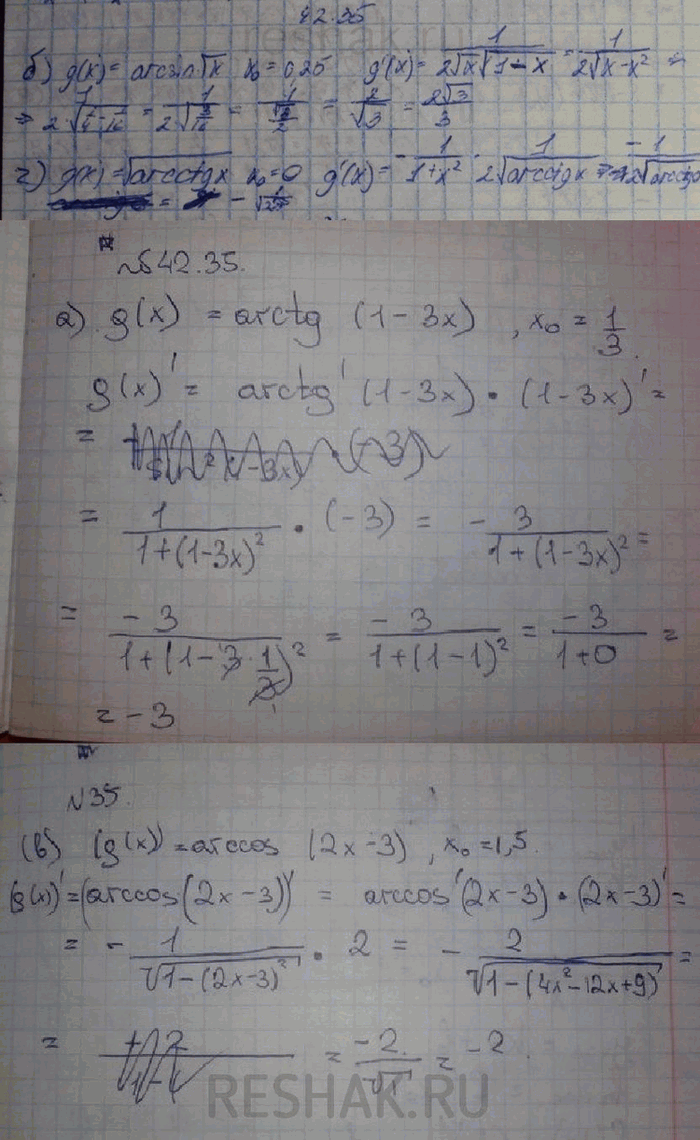 42.35
reshak.ru
б) g(x) = arcsin√x x₀ = 0,25 g'(x) = 1/(2√x√(1-x)) = 1/(2√(x-x²)) =
= 1/(2√(1/4-1/16)) = 1/(2√(3/16)) = 1/(√3/2) = 2/√3 = 2√3/3
г) g(x) = √(arcctgx) x₀ = 0 g'(x) = -1/(1+x²) · 1/(2√(arcctgx)) = -1/(2√(arcctg0
№42.35.
а) g(x) = arctg (1-3x), x₀ = 1/3.
g(x)' = arctg' (1-3x) · (1-3x)' =
=
= 1/(1+(1-3x)²) · (-3) = -3/(1+(1-3x)²) =
= -3/(1+(1-3·1/3)²) = -3/(1+(1-1)²) = -3/(1+0) =
= -3
N35.
(в) (g(x)) = arccos (2x-3), x₀ = 1,5.
(g(x))' = (arccos(2x-3))' = arccos'(2x-3) · (2x-3)' =
= -1/√(1-(2x-3)²) · 2 = -2/√(1-(4x²-12x+9)) =
= = -2/√1 = -2.
RESHAK.RU